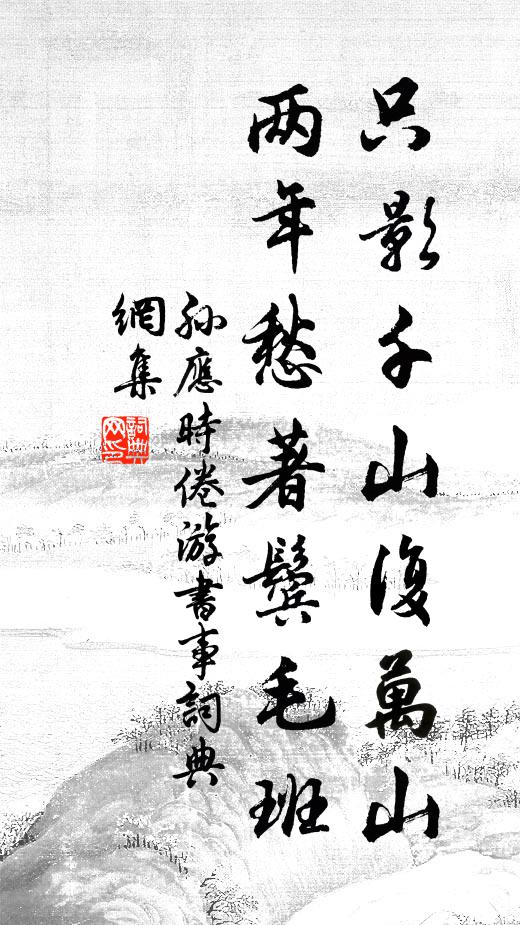 只影千山復萬山
两年愁著鬢毛班
孙應時倦游書事詞典
網集
詞典網印